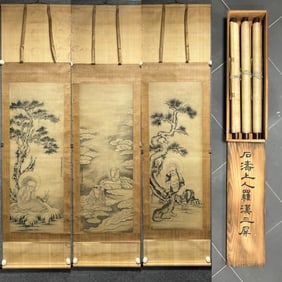 石濤上人羅漢三屏